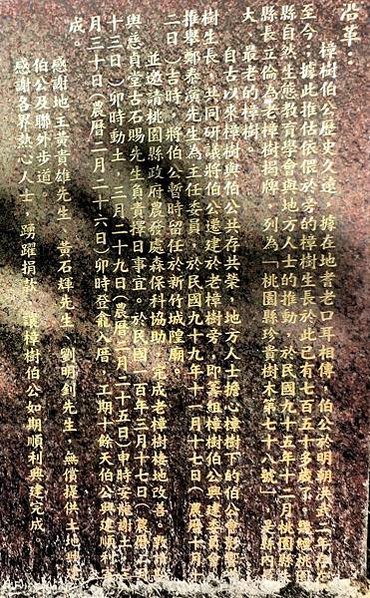 沿革：
樟樹伯公歷史久遠，據在地耆老口耳相傳，伯公於明朝洪武二年
至今。據此推估依偎於旁的樟樹生長於此已有七百五十多歲了，桃園
縣自然生態教育學會與地方人士的推動，於民國九十五年十二月桃園縣
縣長立倫為老樟樹揭牌，列為「桃園縣珍貴樹木第七十八號」，是縣內
大、最老的樟樹。
自古以來樟樹與伯公共存共榮，地方人士擔心樟樹下的伯公會影響
樹生長，共同研議將伯公遷建於老樟樹旁，即籌組樟樹伯公興建委員會
推舉鄭春演先生為主任委員，於民國九十九年十一月十七日（農曆十月十
二日）吉時，將伯公暫時留任於新竹城隍廟。
並邀請桃園縣政府農務處森保科協助，完成老樟樹棲地改善。
與慈貞堂古石賜先生負責擇日事宜。於民國一百年三月十七日（農曆二月
十三日）卯時動土，三月二十九日（農曆二月二十五日）申時安龍謝土，三
月三十日（農曆二月二十六日）卯時登龕入厝，工期十餘天伯公興建順利
成。
感謝地王黃貴雄先生、黃石輝先生、劉明釗先生，無償提供土地興
伯公及聯外步道
感謝各界熱心人士，踴躍捐款，讓樟樹伯公如期順利興建完成。